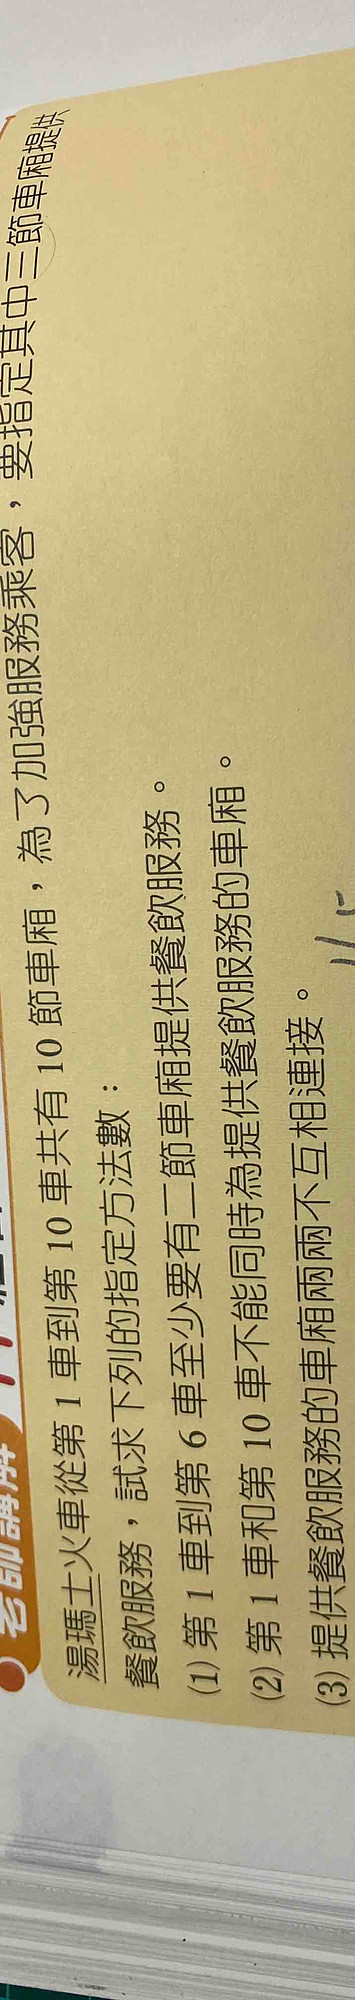 老師講解
湯瑪士火車從第 1 車到第 10 車共有 10 節車廂，為了加強服務乘客，要指定其中三節車廂提供
餐飲服務，試求下列的指定方法數：
(1) 第 1 車到第 6 車至少要有二節車廂提供餐飲服務。
(2) 第 1 車和第 10 車不能同時為提供餐飲服務的車廂。
(3) 提供餐飲服務的車廂兩兩不互相連接。